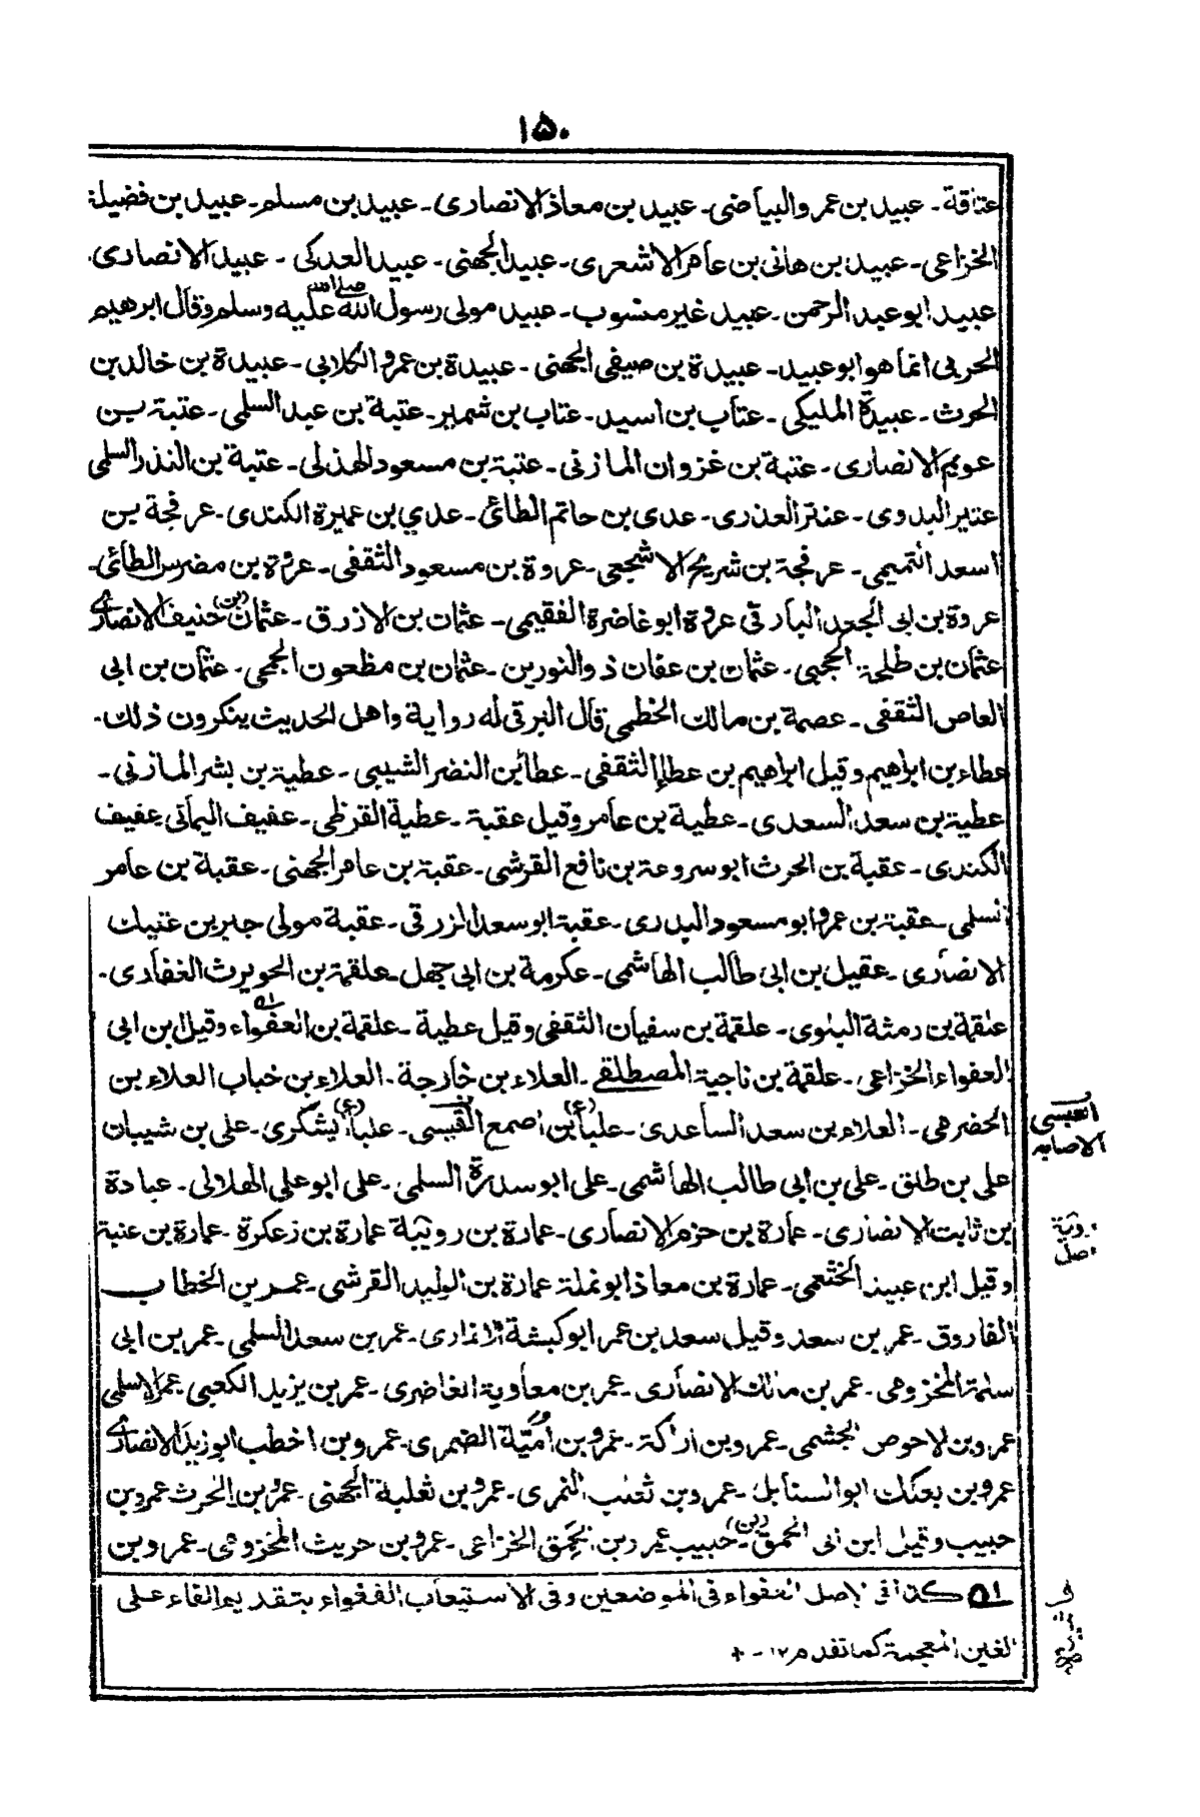 ١٥٠
عتاقة۔ عبيد بن عمرو البياضى۔ عبيد بن معاذ الانصارى۔ عبيد بن مسلم۔ عبيد بن فضيلة
الخزاعى۔ عبيد بن هانى بن عامر الاشعرى۔ عبيد الجهنى۔ عبيد العدكى۔ عبيد الانصارى۔
عبيد ابو عبد الرحمن۔ عبيد غير منسوب۔ عبيد مولى رسول الله صلى الله عليه وسلم وقال ابرهيم
الحربى انما هو ابو عبيد۔ عبيدة بن صيفى الجهنى۔ عبيدة بن عمرو الكلابى۔ عبيدة بن خالد بن
الحرث۔ عبيدة المليكى۔ عتاب بن اسيد۔ عتاب بن شمير۔ عتبة بن عبد السلمى۔ عتبة بن
عويم الانصارى۔ عتبة بن غزوان المازنى۔ عتبة بن مسعود الهذلى۔ عتبة بن النذر السلمى
عتير البدوى۔ عنتر العذرى۔ عدى بن حاتم الطائى۔ عدي بن عميرة الكندى۔ عرفجة بن
اسعد التميمى۔ عرفجة بن شريح الاشجعى۔ عروة بن مسعود الثقفى۔ عروة بن مضرس الطائى۔
عروة بن ابى الجعد البارقى عروة ابو غاضرة الفقيمى۔ عثمان بن الازرق۔ عثمان (بن) حنيف الانصارى
عثمان بن طلحة الحجبى۔ عثمان بن عفان ذو النورين۔ عثمان بن مظعون الجمحى۔ عثمان بن ابى
العاص الثقفى۔ عصمة بن مالك الخطمى قال البرقى له رواية واهل الحديث ينكرون ذلك۔
عطاء بن ابراهيم وقيل ابراهيم بن عطا الثقفى۔ عطا بن النضر الشيبى۔ عطية بن بشر المازنى۔
عطية بن سعد السعدى۔ عطية بن عامر وقيل عقبة۔ عطية القرظى۔ عفيف اليمانى عفيف
الكندى۔ عقبة بن الحرث ابو سروعة بن نافع القرشى۔ عقبة بن عامر الجهنى۔ عقبة بن عامر
السلمى۔ عقبة بن عمرو ابو مسعود البدرى۔ عقبة ابو سعد الزرقى۔ عقبة مولى جبر بن عتيك
الانصارى۔ عقيل بن ابى طالب الهاشمى۔ عكرمة بن ابى جهل۔ علقمة بن الحويرث الغفارى۔
علقمة بن رمثة البلوى۔ علقمة بن سفيان الثقفى وقيل عطية۔ علقمة بن العفواء ٥١ وقيل ابن ابى
العفواء الخزاعى۔ علقمة بن ناجية المصطلقى۔ العلاء بن خارجة۔ العلاء بن خباب العلاء بن
الحضرمى۔ العلاء بن سعد الساعدى۔ علبا (ء) بن اصمع القيسى۔ علبا (ء) اليشكرى۔ على بن شيبان
العبسى
الاصابه
على بن طلق۔ على بن ابى طالب الهاشمى۔ على ابو سدرة السلمى۔ على ابو على الهلالى۔ عبادة
بن ثابت الانصارى۔ عمارة بن حزم الانصارى۔ عمارة بن رويبة عمارة بن زعكرة۔ عمارة بن عنبة
اصل
وقيل ابن عبيد الخثعمى۔ عمارة بن معاذ ابو نملة عمارة بن الوليد القرشى۔ عمر بن الخطاب
الفاروق۔ عمر بن سعد وقيل سعد بن عمر ابو كبشة الانمارى۔ عمر بن سعد السلمى۔ عمر بن ابى
سلمة المخزومى۔ عمر بن مالك الانصارى۔ عمر بن معاوية الغاضرى۔ عمر بن يزيد الكعبى عمر الاسلمى
عمرو بن لاحوص الجشمى۔ عمرو بن اراكة۔ عمرو بن امية الضمرى۔ عمرو بن اخطب ابو زيد الانصارى
عمرو بن بعكك ابو السنابل۔ عمرو بن تغلب النمرى۔ عمرو بن ثعلبة الجهنى۔ عمرو بن الحرث عمرو بن
حبيب وقيل ابن ابى الحمق۔ (بن) حبيب عمرو بن الحمق الخزاعى۔ عمرو بن حريث المخزومى۔ عمرو بن
٥١ كذا فى الاصل العفواء فى الموضعين وفى الاستيعاب الفغواء بتقديم الفاء على
الغين المعجمة كما تقدم ١٢۔